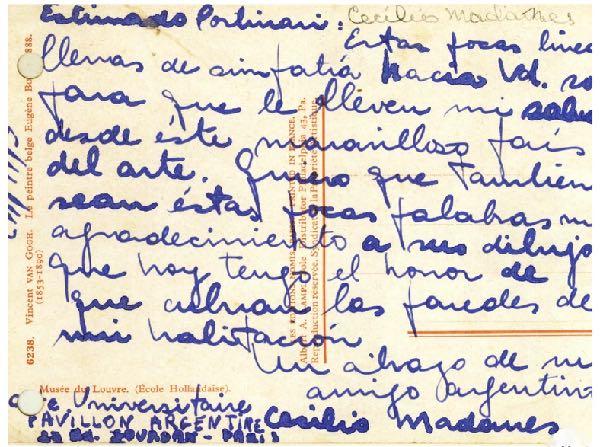 Estimado Portinari:
Cecilio Madanes
Estas pocas líneas
llenas de simpatía hacia Vd. son
para que le lleven mi saludo
desde éste maravilloso país
del arte. Quiero que también
sean éstas pocas palabras mi
agradecimiento a sus dibujos
que hoy tengo el honor de
que cubran las paredes de
mi habitación
Un abrazo de su
amigo argentino
Cecilio Madanes
Universitaire
PAVILLON ARGENTINE
PARIS
6238. VINCENT VAN GOGH. Le peintre belge Eugène 888.
(1853-1890)
Musée du Louvre. (École Hollandaise).
PRINTED IN FRANCE
Albert A. Distributor Philadelphia 43, Pa.
Reproduction réservée. Syndicat de la Propriété Artistique